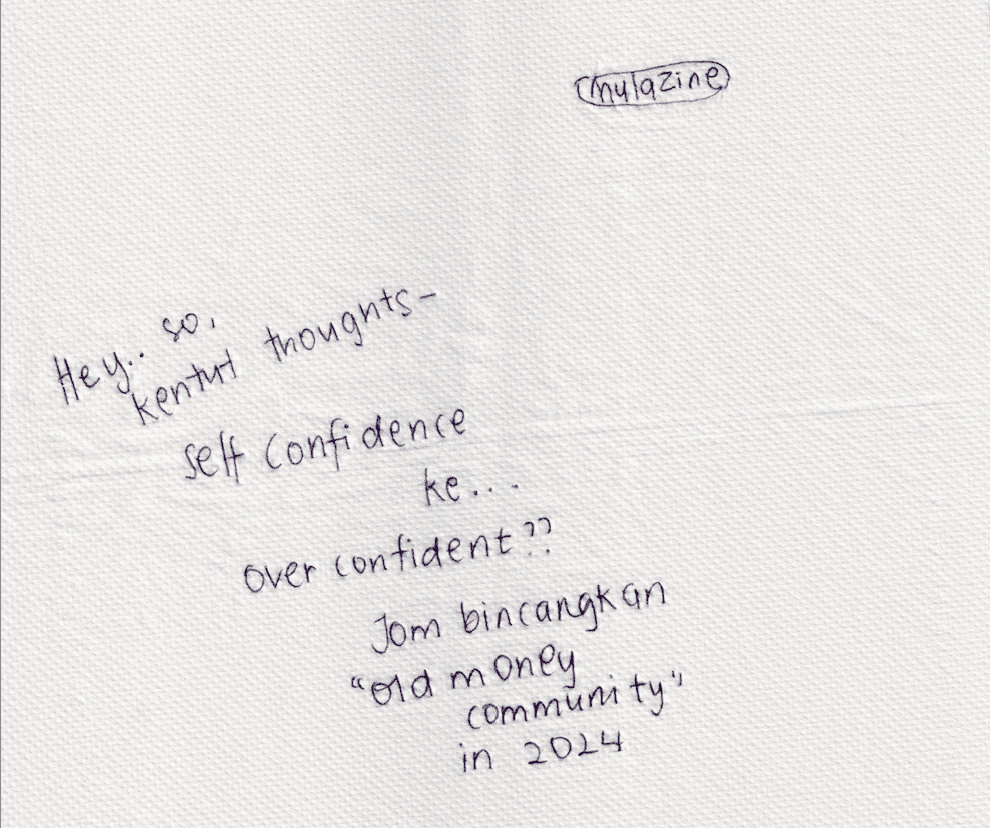 Chulazine
Hey.. so,
kentut thoughts-
self confidence
ke...
over confident??
Jom bincangkan
"old money
community"
in 2024